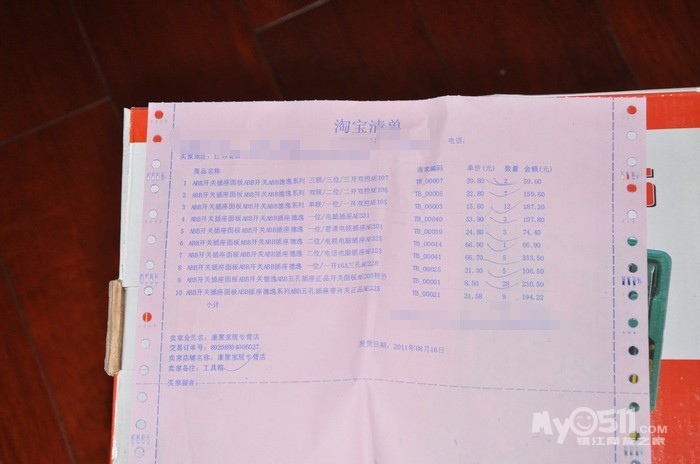 淘宝清单
电话:
商品名称 商家编码 单价(元) 数量 金额(元)
1 ABB开关插座面板ABB开关ABB德逸系列 三联/三位/三开双控AE107 TB_00007 29.80 2 59.60
2 ABB开关插座面板ABB开关ABB德逸系列 双联/二位/二开双控AE106 TB_00006 22.80 7 159.60
3 ABB开关插座面板ABB开关ABB德逸系列 单联/一位/一开双控AE105 TB_00005 15.60 12 187.20
4 ABB开关插座面板ABB开关ABB插座德逸 一位/电脑插座AE331 TB_00040 53.90 2 107.80
5 ABB开关插座面板ABB开关ABB插座德逸 一位/普通电视插座AE301 TB_00019 24.80 3 74.40
6 ABB开关插座面板ABB开关ABB插座德逸 TB_00014 66.90 1 66.90
7 ABB开关插座面板ABB开关ABB插座德逸 二位/电话电脑插座 TB_00041 66.70 5 333.50
8 ABB开关插座面板ABB开关ABB插座德逸 一位/一开16A三孔 TB_00025 21.30 5 106.50
9 ABB开关插座面板ABB开关ABB插座德逸ABB五孔插座正品开关面板AE205 TB_00001 250.50
10 ABB开关插座面板ABB插座德逸系列ABB五孔插座带开关正品AE225 TB_00021 21.58 9 194.22
小计
卖家会员名:康聚家居专营店
交易订单号:
发货日期:2011年08月16日
卖家店铺名称:康聚家居专营店
卖家备注:工具箱
买家留言:
My0511.COM
镇江网友之家